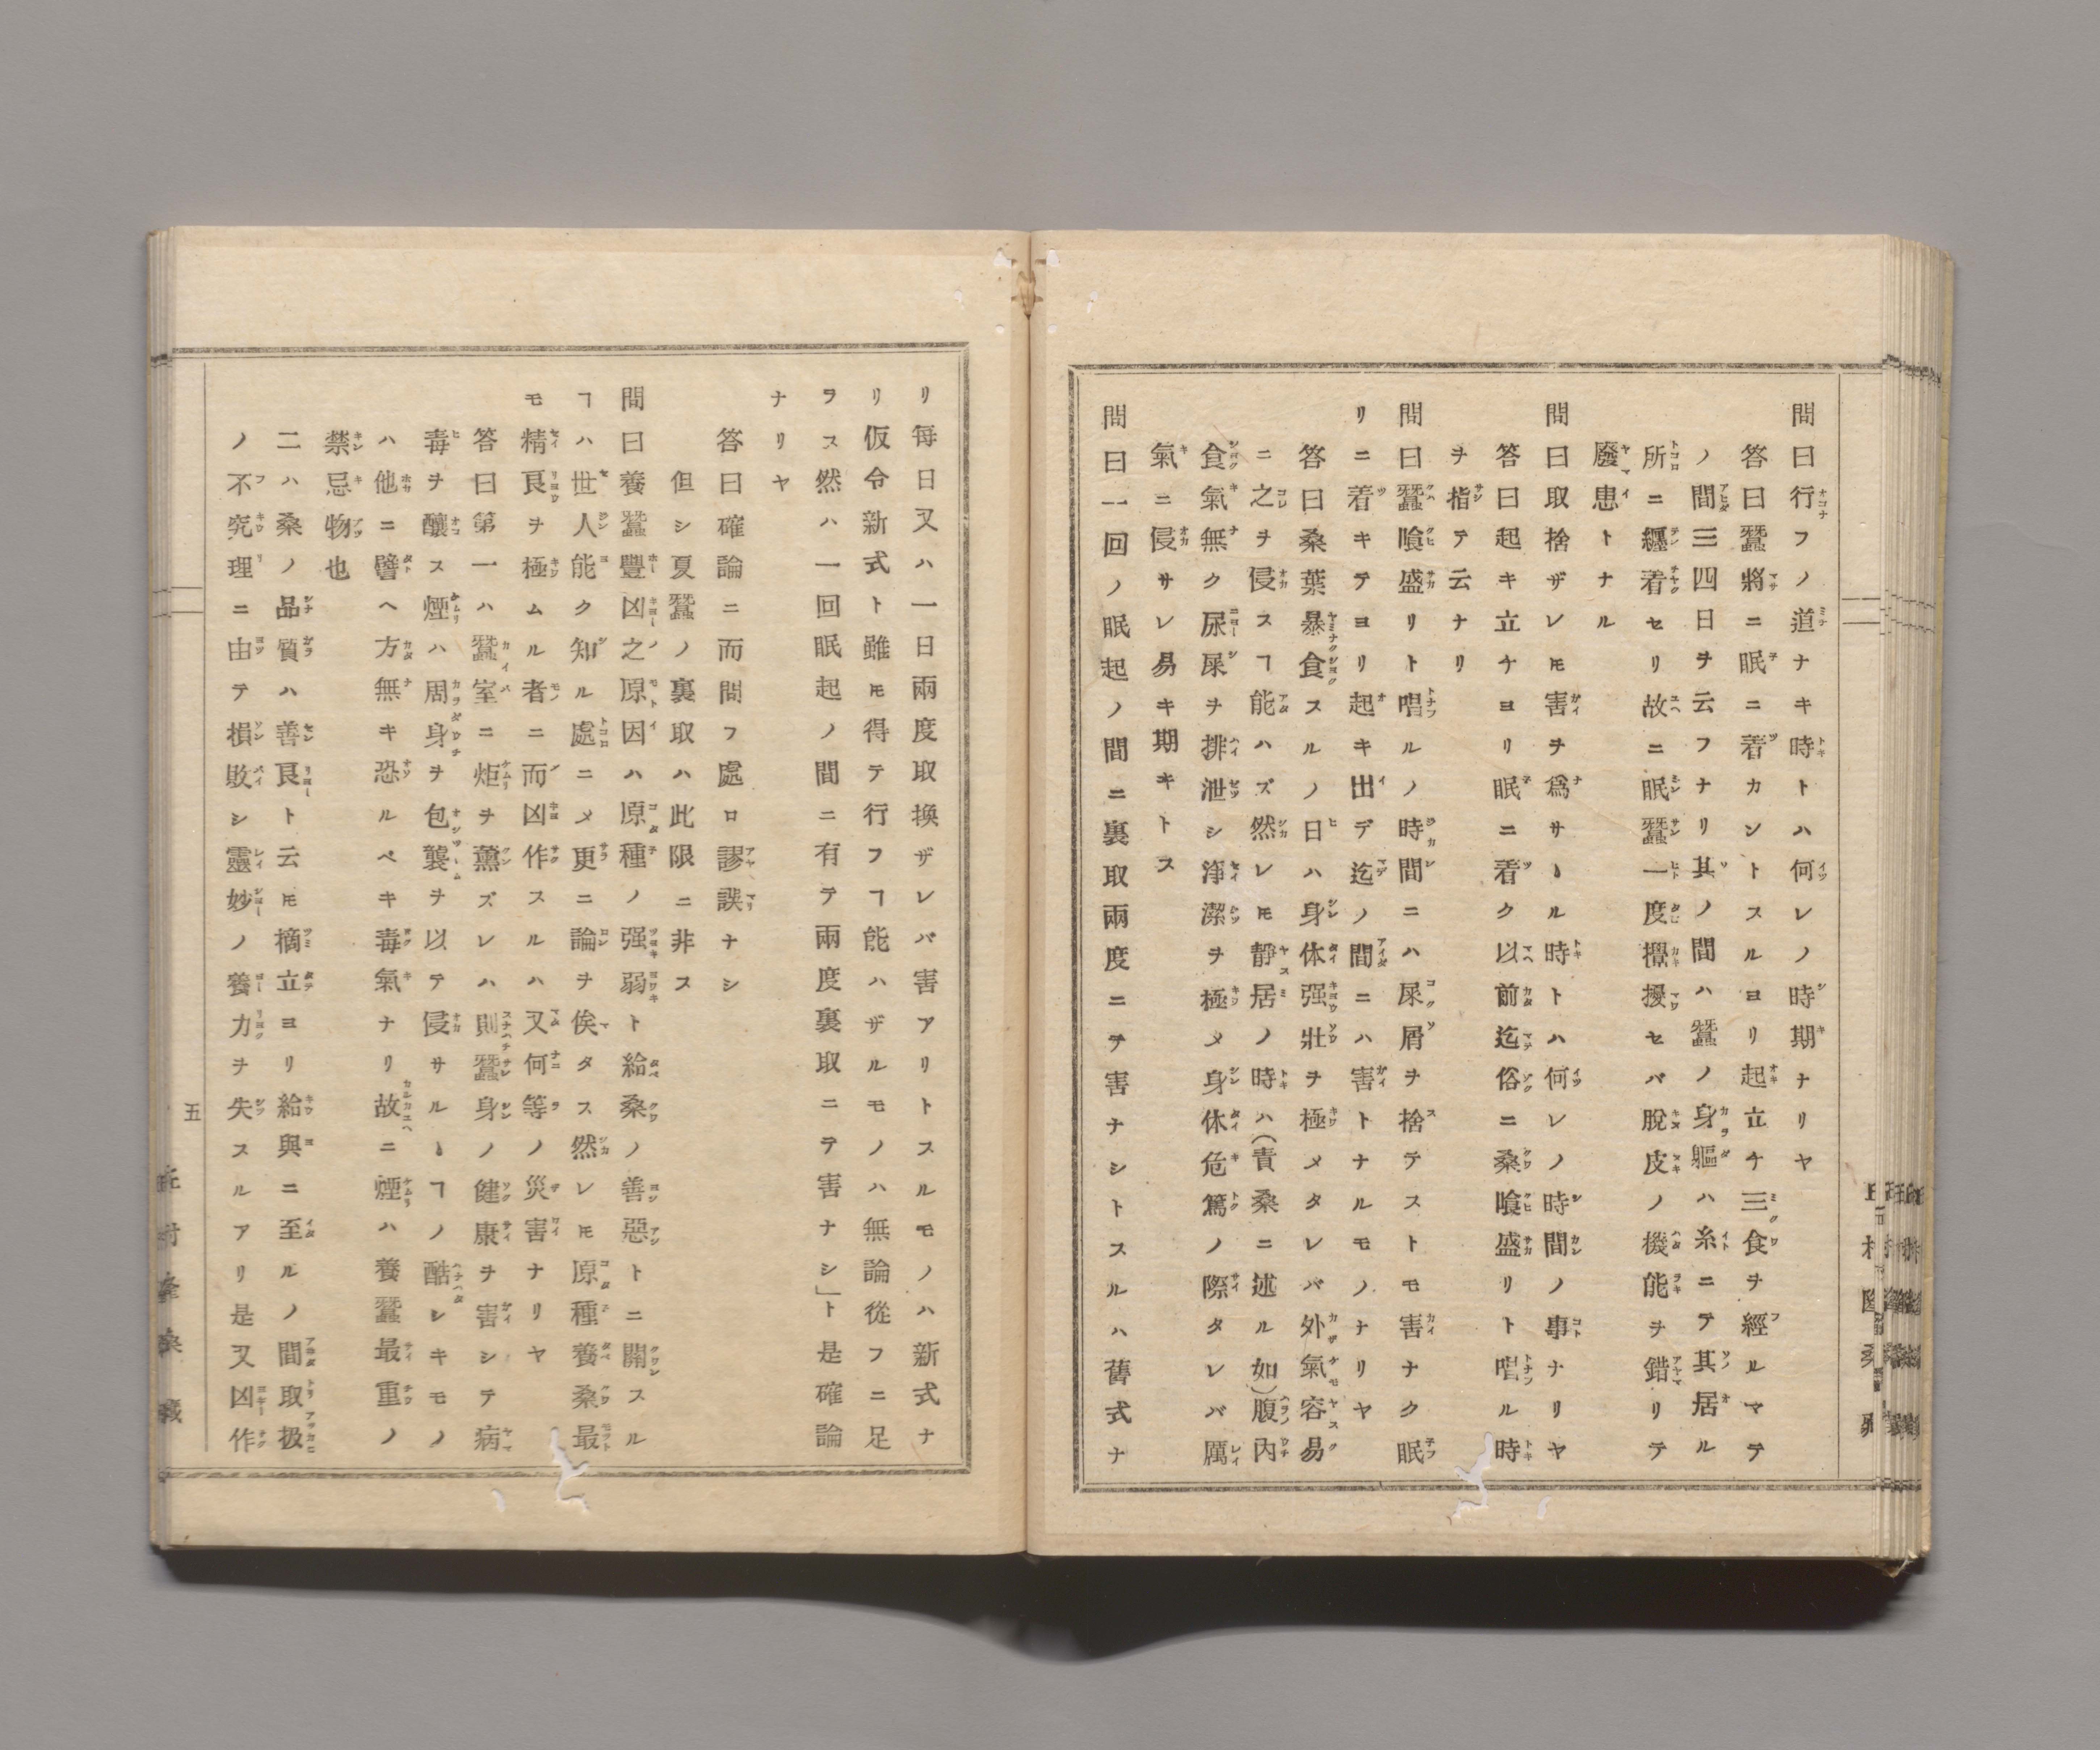 問曰行フノ道ナキ時トハ何レノ時期ナリヤ
答曰蠶將ニ眠ニ着カントスルヨリ起立チ三食ヲ經ルマテ
ノ間三四日ヲ云フナリ其ノ間ハ蠶ノ身軀ハ糸ニテ其居ル
所ニ纒着セリ故ニ眠蠶一度攪擾セバ脫皮ノ機能ヲ錯リテ
廢患トナル
問曰取捨ザレ𪜈害ヲ爲サヽル時トハ何レノ時間ノ事ナリヤ
答曰起キ立チヨリ眠ニ着ク以前迄俗ニ桑喰盛リト唱ル時
ヲ指テ云ナリ
問曰蠶喰盛リト唱ルノ時間ニハ屎屑ヲ捨テストモ害ナク眠
リニ着キテヨリ起キ出デ迄ノ間ニハ害トナルモノナリヤ
答曰桑葉暴食スルノ日ハ身体强壯ヲ極メタレバ外氣容易
ニ之ヲ侵スヿ能ハズ然レ𪜈靜居ノ時ハ(責桑ニ述ル如)腹內
食氣無ク尿屎ヲ排泄シ淨潔ヲ極メ身体危篤ノ際タレバ厲
氣ニ侵サレ易キ期キトス
問曰一回ノ眠起ノ間ニ裏取兩度ニテ害ナシトスルハ舊式ナ
リ每日又ハ一日兩度取換ザレバ害アリトスルモノハ新式ナ
リ仮令新式ト雖𪜈得テ行フヿ能ハザルモノハ無論從フニ足
ヲス然ハ一回眠起ノ間ニ有テ兩度裏取ニテ害ナシ」ト是確論
ナリヤ
答曰確論ニ而問フ處ロ謬誤ナシ
但シ夏蠶ノ裏取ハ此限ニ非ス
問曰養蠶豐凶之原因ハ原種ノ强弱ト給桑ノ善惡トニ關スル
ヿハ世人能ク知ル處ニメ更ニ論ヲ俟タス然レ𪜈原種養桑最
モ精良ヲ極ムル者ニ而凶作スルハ又何等ノ災害ナリヤ
答曰第一ハ蠶室ニ炬ヲ薰ズレハ則蠶身ノ健康ヲ害シテ病
毒ヲ釀ス煙ハ周身ヲ包襲ヲ以テ侵サルヽヿノ酷シキモノ
ハ他ニ譬ヘ方無キ恐ルベキ毒氣ナリ故ニ煙ハ養蠶最重ノ
禁忌物也
二ハ桑ノ品質ハ善良ト云𪜈摘立ヨリ給與ニ至ルノ間取扱
ノ不究理ニ由テ損敗シ靈妙ノ養力ヲ失スルアリ是又凶作
五